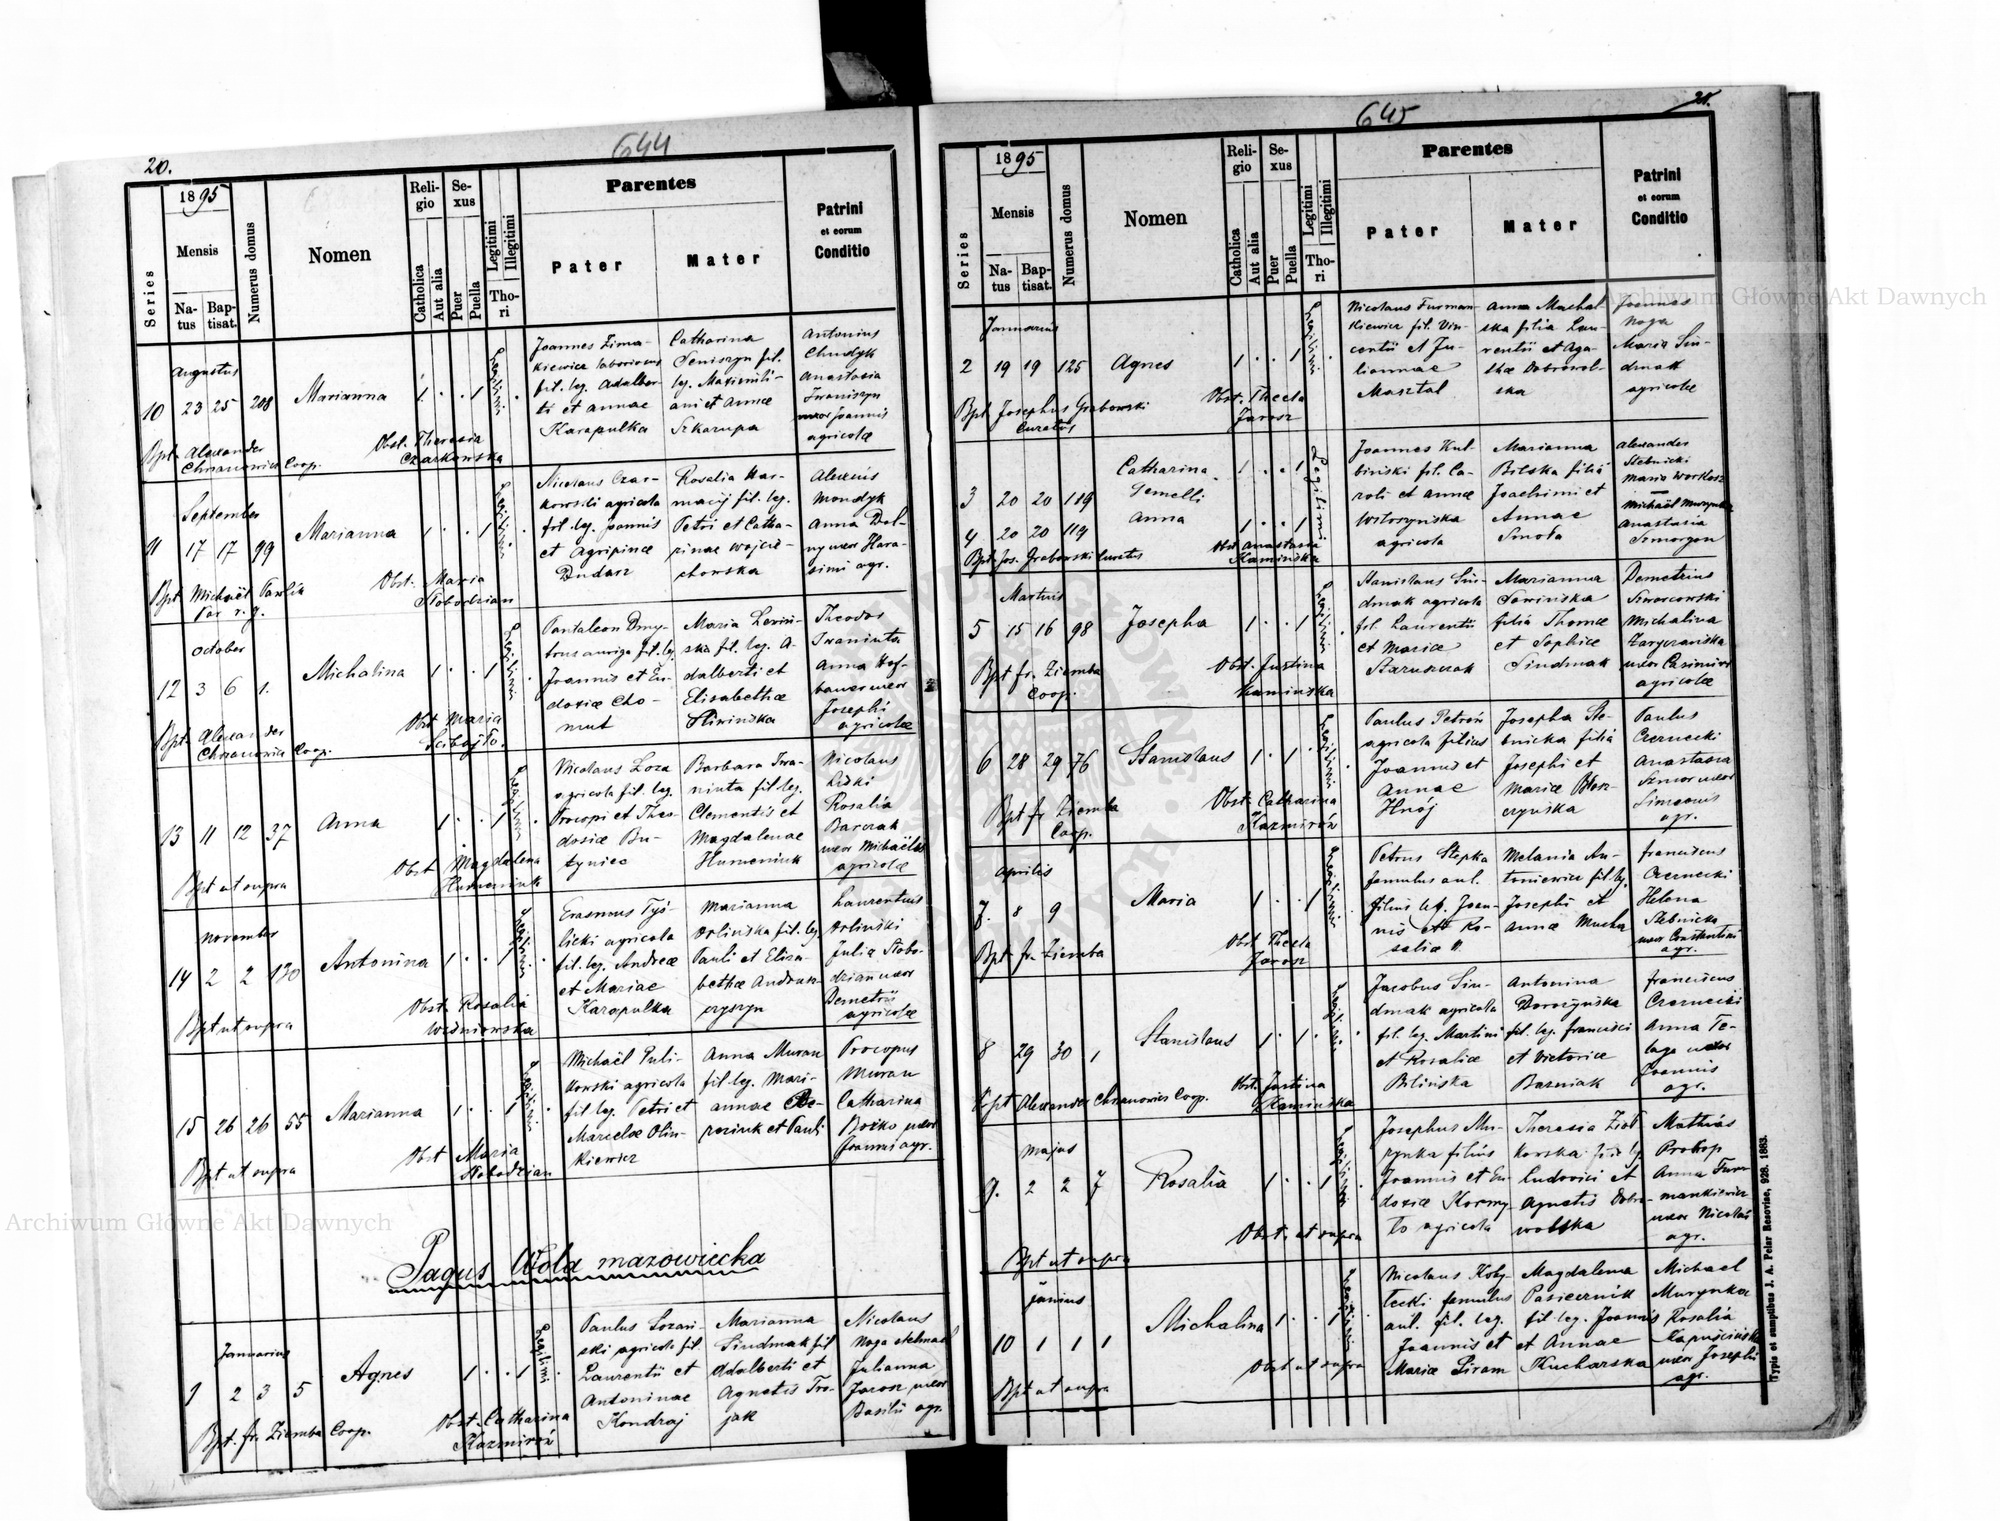 20.
644
1895
Series
Mensis
Natus
Baptisat.
Numerus domus
Nomen
Religio
Catholica
Aut alia
Sexus
Puer
Puella
Legitimi
Illegitimi
Thori
Parentes
Pater
Mater
Patrini
et eorum
Conditio
Augustus
10 23 25 208 Marianna 1 . . 1 Legitimi
Joannes Zima-
kiewicz laboriosus
fil. leg. Adalber-
ti et Annae
Karapulka
Catharina
Seniszyn fil.
leg. Maximili-
ani et Annae
Szkarupa
Antonius
Chudyk
Anastasia
Iwaniszyn
uxor Joannis
agricolae
Bpt. Alexander
Chrzanowicz Coop.
Obst. Theresia
Czarkowska
September
11 17 17 99 Marianna 1 . . 1 Legitimi
Nicolaus Czar-
kowski agricola
fil. leg. Joannis
et Agripinae
Dudarz
Rosalia Har-
macij fil. leg.
Petri et Catha-
rinae Wojcie-
chowska
Alexius
Mondyk
Anna Dol-
ny uxor Hara-
simi agr.
Bpt. Michaël Pawlik
Par. r. g.
Obst. Maria
Słobodzian
October
12 3 6 1. Michalina 1 . . 1 Legitimi
Pantaleon Dmy-
trus auriga fil. leg.
Joannis et Eu-
doxiae Cho-
mut
Maria Levin-
ska fil. leg. A-
dalberti et
Elisabethae
Sliwińska
Theodor
Iwaniuta
Anna Hof-
bauer uxor
Josephi
agricolae
Bpt. Alexander
Chrzanowicz Coop.
Obst. Maria
13 11 12 37 Anna 1 . . 1 Legitimi
Nicolaus Loza
agricola fil. leg.
Procopi et Theo-
dosiae Bu-
tyniec
Barbara Iwa-
niuta fil. leg.
Clementis et
Magdalenae
Humeniuk
Nicolaus
Liski
Rosalia
Barczak
uxor Michaëlis
agricolae
Bpt ut supra
Obst. Magdalena
Humeniuk
November
14 2 2 130 Antonina 1 . . 1 Legitimi
Erasmus Tyś-
licki agricola
fil. leg. Andreae
et Mariae
Karapulka
Marianna
Orlińska fil. leg.
Pauli et Eliza-
bethae Andrusz-
czyszyn
Laurentius
Orliński
Julia Słobo-
dzian uxor
Demetrii
agricolae
Bpt ut supra
Obst. Rosalia
Wiśniowska
15 26 26 55 Marianna 1 . . 1 Legitimi
Michaël Puli-
kowski agricola
fil. leg. Petri et
Marielae Olin-
kiewicz
Anna Muran
fil. leg. Mari-
annae
et Pauli
Procopus
Muran
Catharina
Bożko uxor
Joannis agr.
Bpt ut supra
Obst Maria
Słobodzian
Pagus Wola mazowiecka
Januarius
1 2 3 5 Agnes 1 . . 1 Legitimi
Paulus Lozań-
ski agricola fil.
Laurentii et
Antoninae
Kondraj
Marianna
Sindmak fil
Adalberti et
Agnetis Tro-
jak
Nicolaus
Noga
Julianna
Jarosz uxor
Basilii agr.
Bpt. fr. Ziemba Coop.
Obst. Catharina
Kazmiroń
21.
645
1895
Series
Mensis
Natus
Baptisat.
Numerus domus
Nomen
Religio
Catholica
Aut alia
Sexus
Puer
Puella
Legitimi
Illegitimi
Thori
Parentes
Pater
Mater
Patrini
et eorum
Conditio
Januarius
2 19 19 125 Agnes 1 . . 1 Legitimi
Nicolaus Furman-
kiewicz fil. Vin-
centii et Ju-
liannae
Masztal
Anna Machal-
ska filia Lau-
rentii et Aga-
thae Dobrowol-
ska
Joannes
Noga
Maria Sin-
dmak
agricolae
Bpt. Josephus Grabowski
Curatus
Obst. Thecla
Jarosz
3 20 20 119 Catharina 1 . . 1 Legitimi
Gemelli
4 20 20 119 Anna 1 . . 1
Joannes Kul-
biński fil. Ca-
roli et Annae
agricola
Marianna
Bilska filia
Joachimi et
Annae
Smoła
Alexander
Stebnicki
Maria Worobosz
Michaël Murynka
Anastasia
Szmorgon
Bpt. Jos. Grabowski Curatus
Obst. Anastasia
Kamińska
Martius
5 15 16 98 Josepha 1 . . 1 Legitimi
Stanislaus Sin-
dmak agricola
fil. Laurentii
et Mariae
Baruszczak
Marianna
Sowińska
filia Thomae
et Sophiae
Sindmak
Demetrius
Szworcowski
Michalina
Zaryczańska
uxor Casimiri
agricolae
Bpt fr. Ziemba
Coop.
Obst. Justina
Kamińska
6 28 29 76 Stanislaus 1 . 1 . Legitimi
Paulus Petroń
agricola filius
Joannis et
Annae
Hnój
Josepha Ste-
bnicka filia
Josephi et
Mariae Błosz-
czyńska
Paulus
Czernecki
Anastasia
Szmor uxor
Simeonis
agr.
Bpt fr Ziemba
Coop.
Obst. Catharina
Kazmiroń
Aprilis
7. 8 9 Maria 1 . . 1 Legitimi
Petrus Stepka
famulus aul.
filius leg. Joan-
nis et Ro-
saliae
Melania An-
toniewicz fil. leg.
Josephi et
Annae Mucha
Franciscus
Czernecki
Helena
Stebnicka
uxor Constantini
agr.
Bpt. fr. Ziemba
Obst. Thecla
Jarosz
8 29 30 1 Stanislaus 1 . 1 . Legitimi
Jacobus Sin-
dmak agricola
fil. leg. Martini
et Rosaliae
Bilińska
Antonina
Doroszyńska
fil. leg. Francisci
et Victoriae
Bazniak
Franciscus
Czernecki
Anna Te-
laga uxor
Joannis
agr.
Bpt Alexander Chrzanowicz Coop.
Obst. Justina
Kamińska
Majus
9. 2 2 7 Rosalia 1 . . 1 Legitimi
Josephus Mu-
rynka filius
Joannis et Eu-
doxiae Kormy-
ło agricola
Theresia Ziół-
kowska fil. leg
Ludovici et
Agnetis Dobro-
wolska
Mathias
Prokop
Anna Fur-
mankiewicz
uxor Nicolai
agr.
Bpt ut supra
Obst. ut supra
Junius
10 1 1 1 Michalina 1 . . 1 Legitimi
Nicolaus Koby-
łecki famulus
aul. fil. leg.
Joannis et
Mariae Siram
Magdalena
Pasiecznik
fil. leg. Joannis
et Annae
Kucharska
Michael
Murynka
Rosalia
Kapuścińska
uxor Josephi
agr.
Bpt ut supra
Obst ut supra
Typis et sumptibus J. A. Pelar Resoviae, 928. 1883.
Archiwum Główne Akt Dawnych
Archiwum Główne Akt Dawnych